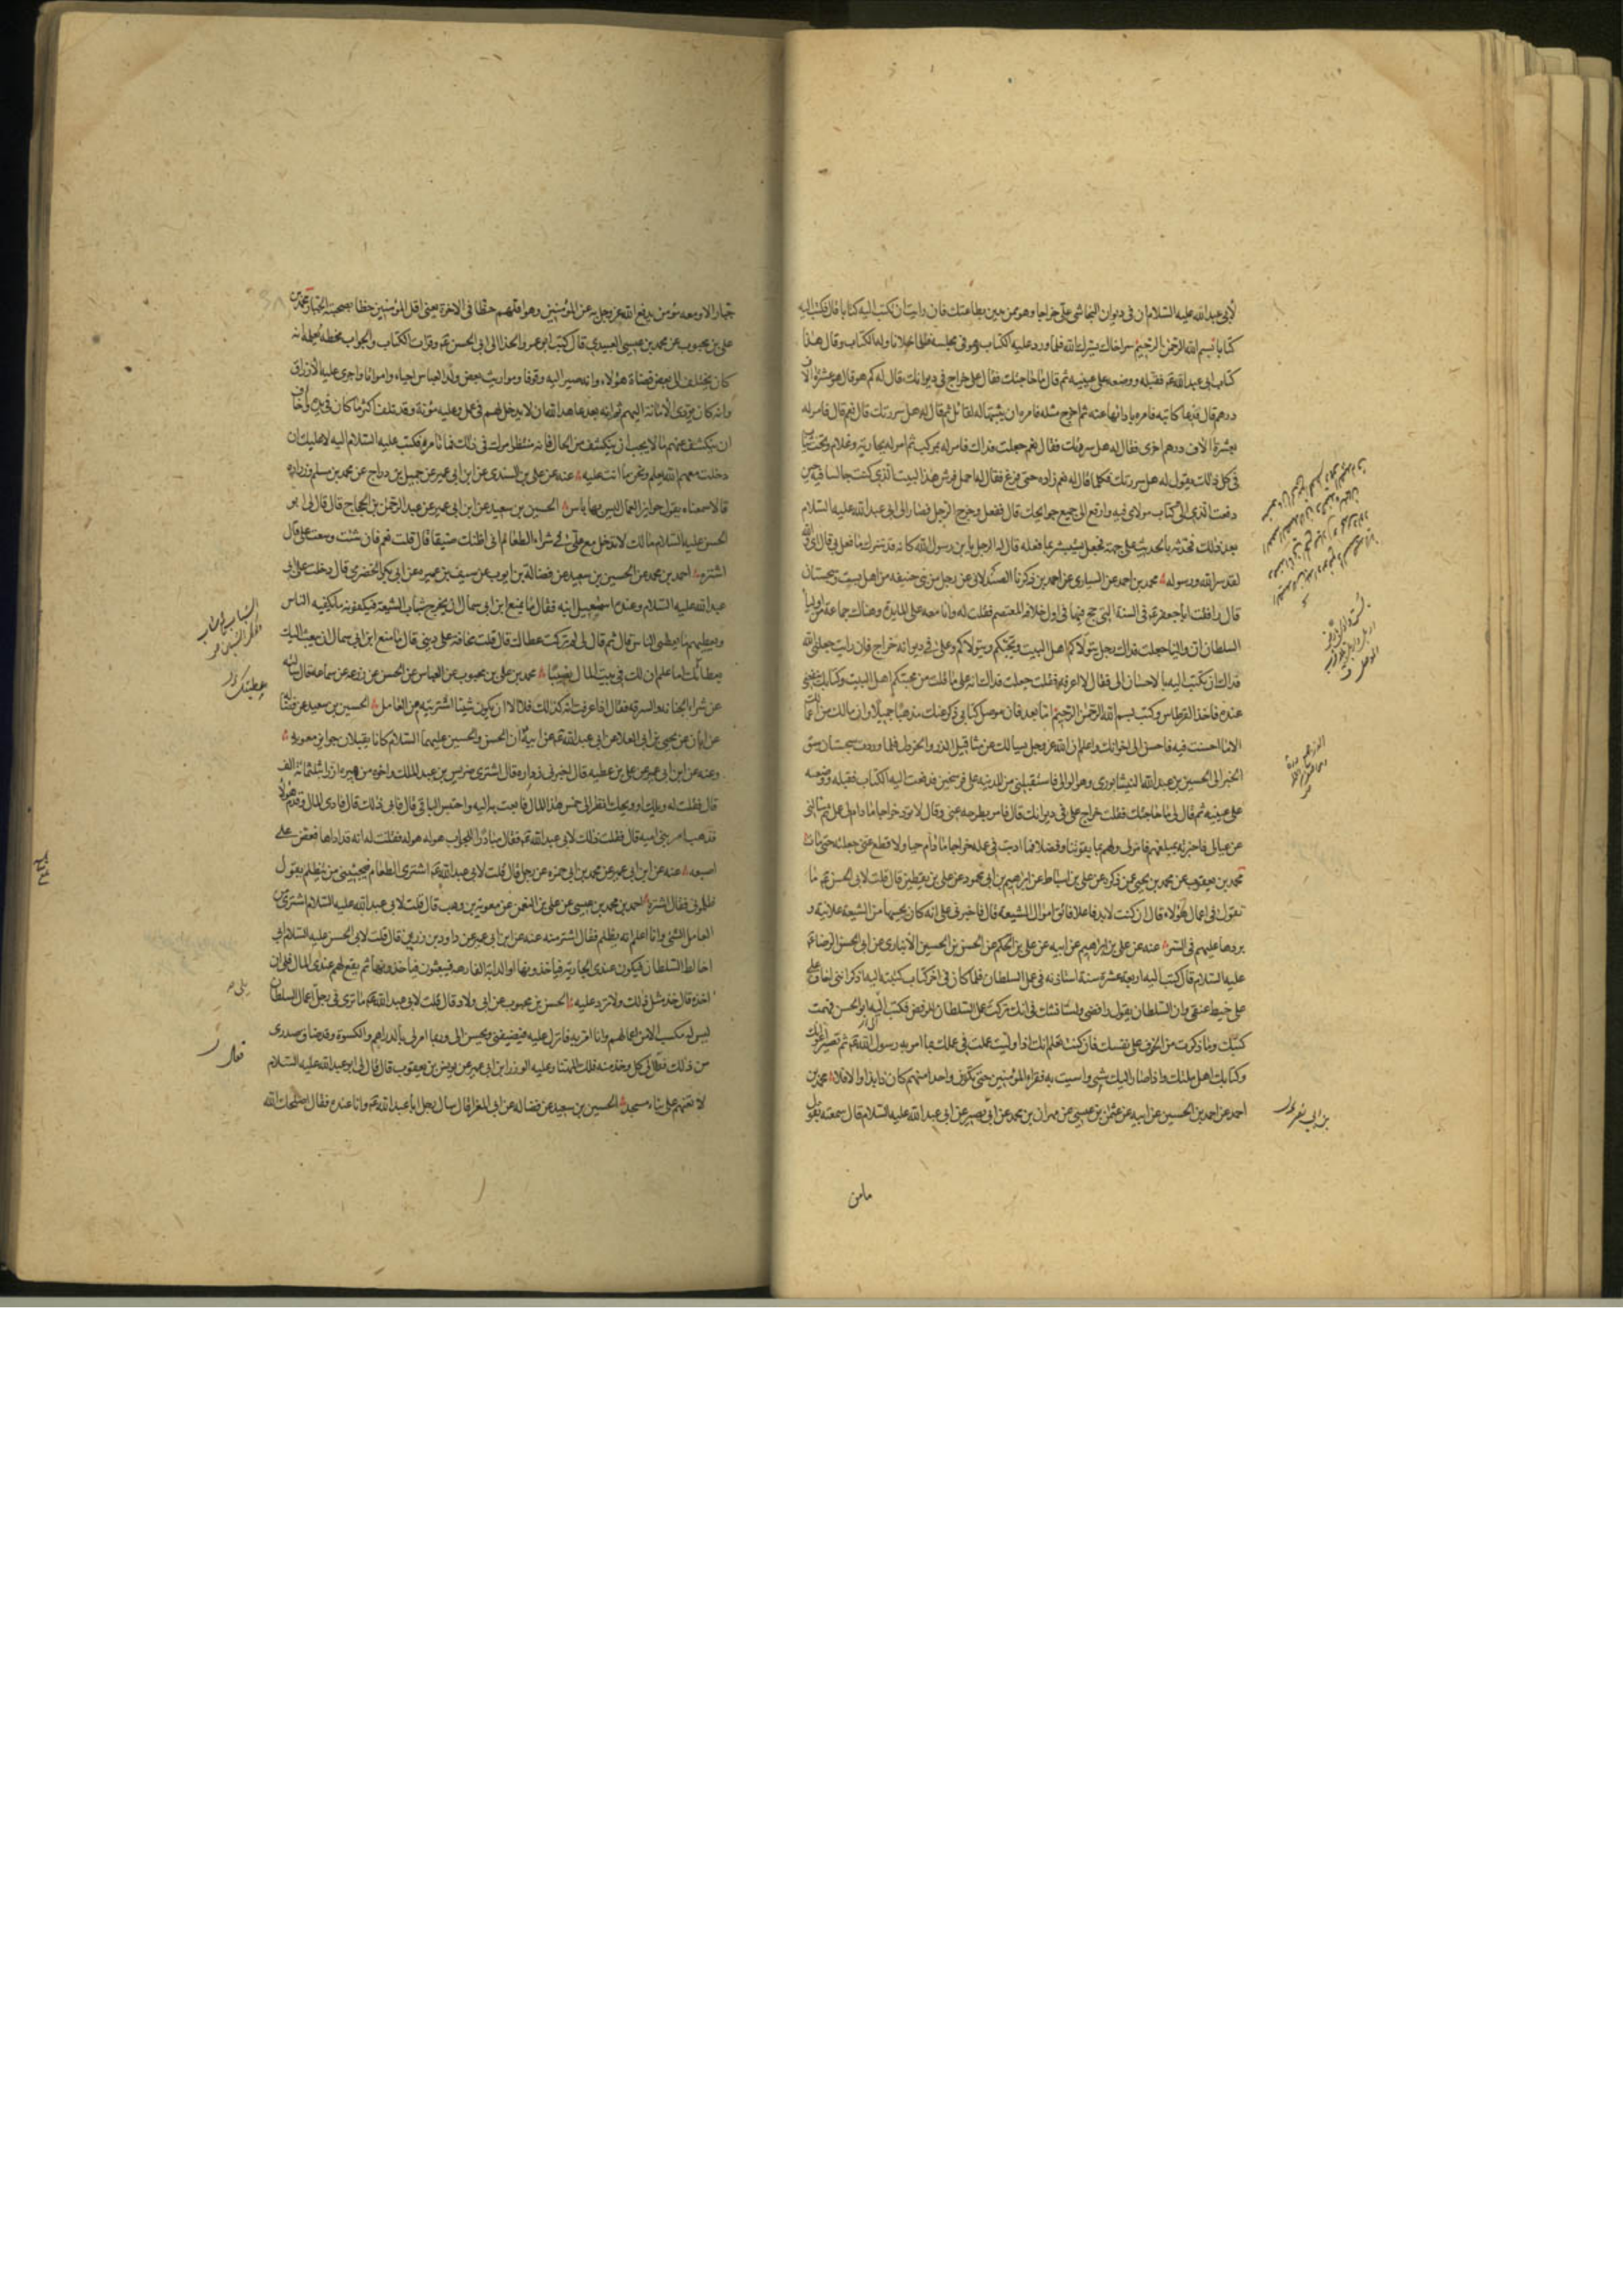 لابي عبد الله عليه السلام ان في ديوان النجاشي علي خراجا وهو ممن يدين بطاعتك فان رايت ان تكتب اليه كتابا قال فكتب اليه
كتابا بسم الله الرحمن الرحيم سر اخاك يسرك الله فلما ورد عليه الكتاب وهو في مجلسه فلما خلا ناوله الكتاب وقال هذا
كتاب ابي عبد الله عم فقبله ووضعه على عينيه ثم قال ما حاجتك فقال علي خراج في ديوانك قال له كم هو قال هو عشرة الاف
درهم قال فدعا كاتبه فامره بادائها عنه ثم اخرج مثله فامره ان يثبتها له لقابل ثم قال له هل سررتك قال نعم قال فامر له
بعشرة الاف درهم اخرى فقال له هل سررتك فقال نعم جعلت فداك فامر له بمركب ثم امر له بجارية وغلام وتخت ثياب
في كل ذلك يقول له هل سررتك فكلما قال له نعم زاده حتى فرغ فقال له احمل فرش هذا البيت الذي كنت جالسا فيه حين
دفعت الذي الى كتاب مولاي فيه وارفع الي جميع حوائجك قال ففعل وخرج الرجل فصار الى ابي عبد الله عليه السلام
بعد ذلك فحدثه بالحديث على جهته فجعل يستبشر بما فعله قال له الرجل يا بن رسول الله كانه قد سرك ما فعل بي قال اي والله
لقد سر الله ورسوله محمد بن احمد عن السياري عن احمد بن زكريا الصيدلاني عن رجل من بني حنيفه من اهل بست وسجستان
قال رافقت ابا جعفر عم في السنة التي حج فيها في اول خلافة المعتصم فقلت له وانا معه على المايدة وهناك جماعة من اولياء
السلطان ان والينا جعلت فداك رجل يتولاكم اهل البيت ويحبكم وعلي في ديوانه خراج فان رايت جعلني الله
فداك ان تكتب اليه بالاحسان الي فقال لا اعرفه فقلت جعلت فداك انه على ما قلت من محبتكم اهل البيت وكتابك ينفعني
عنده فاخذ القرطاس وكتب بسم الله الرحمن الرحيم اما بعد فان موصل كتابي ذكر عنك مذهبا جميلا وان ما لك من اعمالك
الا ما احسنت فيه فاحسن الى اخوانك واعلم ان الله عز وجل سيسالك عن مثاقيل الذر والخردل فلما وردت سجستان سبق
الخبر الى الحسين بن عبد الله النيشابوري وهو الوالي فاستقبلني من المدينه على فرسخين فدفعت اليه الكتاب فقبله ووضعه
على عينيه ثم قال لي ما حاجتك فقلت خراج علي في ديوانك قال فامر بطرحه عني وقال لا تود خراجا ما دام لي عمل ثم سالني
عن عيالي فاخبرته بمبلغهم فامر لي ولهم بما يقوتنا وفضلا فما اديت في عمله خراجا ما دام حيا ولا قطع عني صلته حتى مات
محمد بن يعقوب عن محمد بن يحيى عمن ذكره عن علي بن اسباط عن ابرهيم بن ابي محمود عن علي بن يقطين قال قلت لابي الحسن عم ما
تقول في اعمال هؤلاء قال ان كنت لابد فاعلا فاتق اموال الشيعه قال فاخبرني علي انه كان يجبيها من الشيعة علانية و
يردها عليهم في السر عنه عن علي بن ابرهيم عن ابيه عن علي بن الحكم عن الحسن بن الحسين الانباري عن ابي الحسن الرضا عم
عليه السلام قال كتبت اليه اربعة عشرة سنة استاذنه في عمل السلطان فلما كان في اخر كتاب كتبته اليه اذكر انني اخاف على
على خيط عنقي وان السلطان يقول رافضي ولسنا نشك في انك تركت عمل السلطان للرفض فكتب اليه ابو الحسن فهمت
كتبك وما ذكرت من الخوف على نفسك فان كنت تعلم انك اذا وليت عملت في عملك بما امر به رسول الله عم ثم تصير اعوانك
وكتابك اهل ملتك واذا صار اليك شي واسيت به فقراء المؤمنين حتى تكون واحدا منهم كان ذا بذا والا فلا محمد بن
احمد عن احمد بن الحسين عن ابيه عن عثمن بن عيسى عن مهران بن محمد عن ابي بصير عن ابي عبد الله عليه السلام قال سمعته يقول
بن ابي نصر
ما من
جبار الا ومعه مؤمن يدفع الله عز وجل به عن المؤمنين وهو اقلهم حظا في الاخرة يعني اقل المؤمنين حظا بصحبة الجبار محمد بن
علي بن محبوب عن محمد بن عيسى العبيدي قال كتب ابو عمرو الحذا الى ابي الحسن عم وقرات الكتاب والجواب بخطه يعلمه انه
كان يختلف الى بعض قضاة هؤلاء وانه صير اليه وقوفا ومواريث بعض ولد العباس احياء وامواتا واجرى عليه الارزاق
وانه كان يودي الامانة اليهم ثم انه بعد عاهد الله ان لا يدخل لهم في عمل وعليه مؤنة وقد تلف اكثر ما كان في يده واخاف
ان ينكشف عنهم ما لا يحب ان ينكشف من الحال فانه منتظر امرك في ذلك فما تامره فكتب عليه السلام اليه لا عليك ان
دخلت معهم الله يعلم ونحن ما انت عليه عنه عن علي بن السندي عن ابن ابي عمير عن جميل بن دراج عن محمد بن مسلم وزراره
قالا سمعناه يقول جوايز العمال ليس بها باس الحسين بن سعيد عن ابن ابي عمير عن عبد الرحمن بن الحجاج قال قال لي ابو
الحسن عليه السلام مالك لا تدخل مع علي في شراء الطعام اني اظنك ضيقا قال قلت نعم فان شئت وسعت علي قال
اشتره احمد بن محمد عن الحسين بن سعيد عن فضالة بن ايوب عن سيف بن عميره عن ابي بكر الحضرمي قال دخلت على ابي
عبد الله عليه السلام وعنده اسمعيل ابنه فقال ما يمنع ابن ابي سمال ان يخرج شباب الشيعة فيكفونه ما يكفيه الناس
ويعطيهم ما يعطي الناس قال ثم قال لي لم تركت عطاك قال قلت مخافة على ديني قال ما منع ابن ابي سمال ان يبعث اليك
بعطائك اما علم ان لك في بيت المال نصيبا محمد بن علي بن محبوب عن العباس عن الحسن عن زرعه عن سماعه قال سالته
عن شراء الخيانه والسرقه فقال اذا عرفت انه كذلك فلا الا ان يكون شيئا اشتريته من العامل الحسين بن سعيد عن فضاله
عن ابان عن يحيى بن ابي العلا عن ابي عبد الله عم عن ابيه ان الحسن والحسين عليهما السلام كانا يقبلان جوايز معويه
وعنه عن ابن ابي عمير عن علي بن عطيه قال اخبرني زراره قال اشترى ضريس بن عبد الملك واخوه من هبيره ارزا بثلثمائة الف
قال فقلت له ويلك او ويحك انظر الى خمس هذا المال فابعث به اليه واحتبس الباقي قال فابى ذلك قال فادى المال وقدم هؤلاء
فذهب امر بني اميه قال فقلت ذلك لابي عبد الله عم فقال مبادرا للجواب هو له هو له فقلت له انه قد اداها فعض على
اصبعه عنه عن ابن ابي عمير عن محمد بن ابي حمزه عن رجل قال قلت لابي عبد الله عم اشتري الطعام فيجيئني من يتظلم يقول
ظلموني فقال اشتره احمد بن محمد بن عيسى عن علي بن النعمن عن معوية بن وهب قال قلت لابي عبد الله عليه السلام اشتري من
العامل الشي وانا اعلم انه يظلم فقال اشتر منه عنه عن ابن ابي عمير عن داود بن رزين قال قلت لابي الحسن عليه السلام اني
اخالط السلطان فيكون عندي الجارية فياخذونها او الدابة الفارهه فيبعثون فياخذونها ثم يقع لهم عندي المال فلي ان
اخذه قال خذ مثل ذلك ولا تزد عليه الحسن بن محبوب عن ابي ولاد قال قلت لابي عبد الله عم ما ترى في رجل يلي اعمال السلطان
ليس له مكسب الا من اعمالهم وانا امر به فانزل عليه فيضيفني ويحسن الي وربما امر لي بالدراهم والكسوة وقد ضاق صدري
من ذلك فقال لي كل وخذ منه فلك المهنا وعليه الوزر ابن ابي عمير عن يونس بن يعقوب قال قال لي ابو عبد الله عليه السلام
لا تعنهم على بناء مسجد الحسين بن سعيد عن فضاله عن ابي المغرا قال سال رجل ابا عبد الله عم وانا عنده فقال اصلحك الله